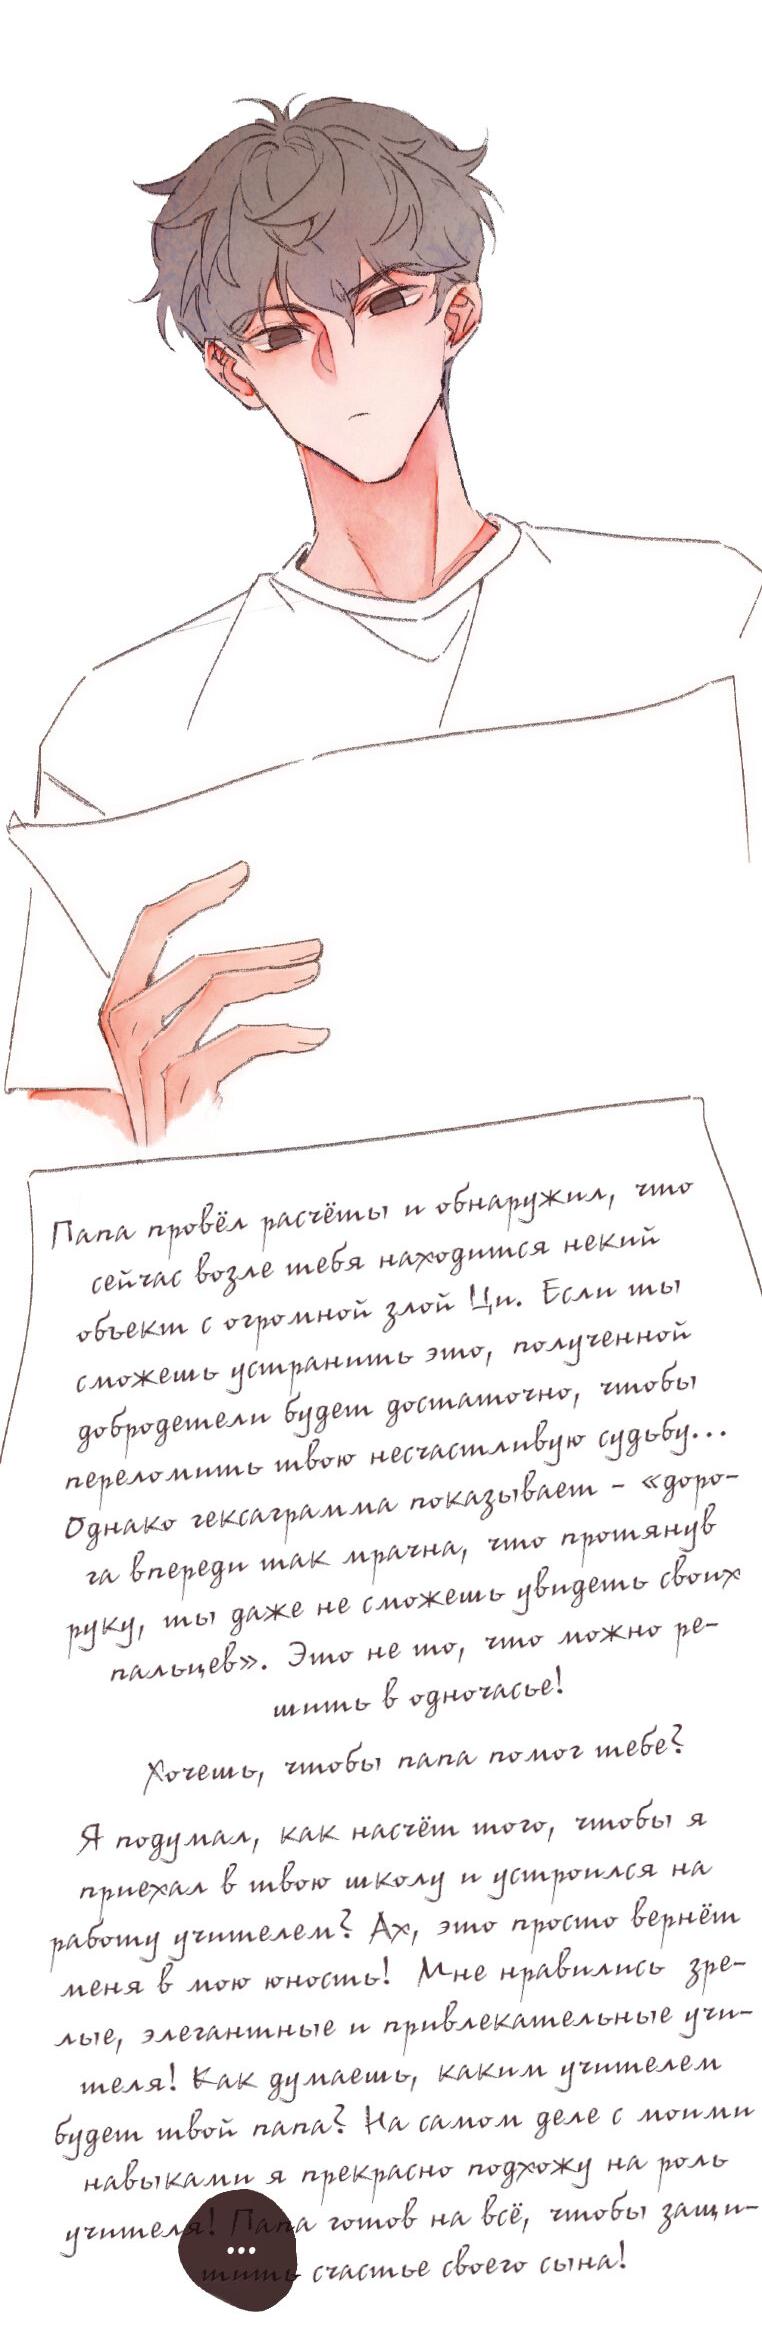 Папа провёл расчёты и обнаружил, что
сейчас возле тебя находится некий
объект с огромной злой Ци. Если ты
сможешь устранить это, полученной
добродетели будет достаточно, чтобы
переломить твою несчастливую судьбу...
Однако гексаграмма показывает – «доро-
га впереди так мрачна, что протянув
руку, ты даже не сможешь увидеть своих
пальцев». Это не то, что можно ре-
шить в одночасье!
Хочешь, чтобы папа помог тебе?
Я подумал, как насчёт того, чтобы я
приехал в твою школу и устроился на
работу учителем? Ах, это просто вернёт
меня в мою юность! Мне нравились зре-
лые, элегантные и привлекательные учи-
теля! Как думаешь, каким учителем
будет твой папа? На самом деле с моими
навыками я прекрасно подхожу на роль
учителя! Папа готов на всё, чтобы защи-
тить счастье своего сына!
...